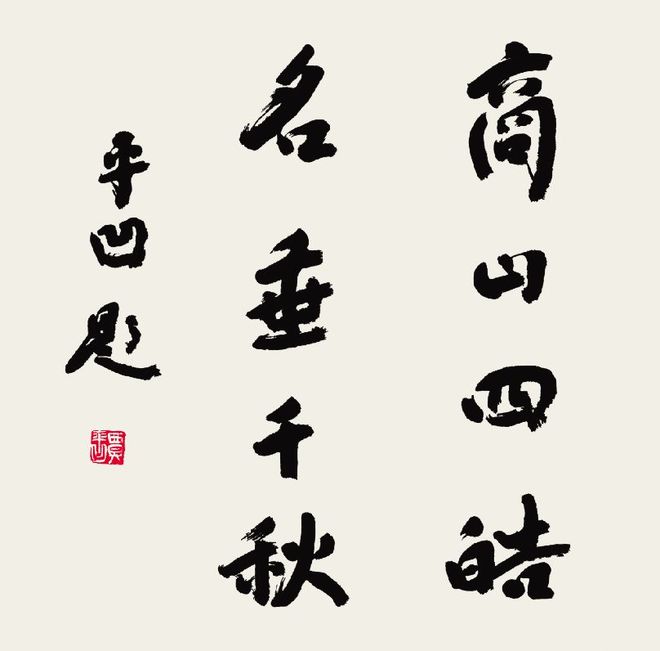 商山四皓
名垂千秋
平凹题